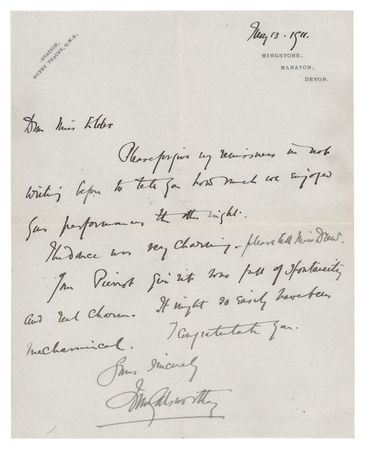 STATION,
BOVEY TRACEY, G.W.R.
May 13. 1911.
WINGSTONE,
MANATON,
DEVON.
Dear Miss Elder
Please forgive my remissness in not
writing before to tell you how much we enjoyed
your performances the other night.
The dance was very charming - please tell Miss
Your Pierrot was full of spontaneity
and real charm. It might so easily have been
mechanical. I congratulate you.
Yours sincerely
John Galsworthy